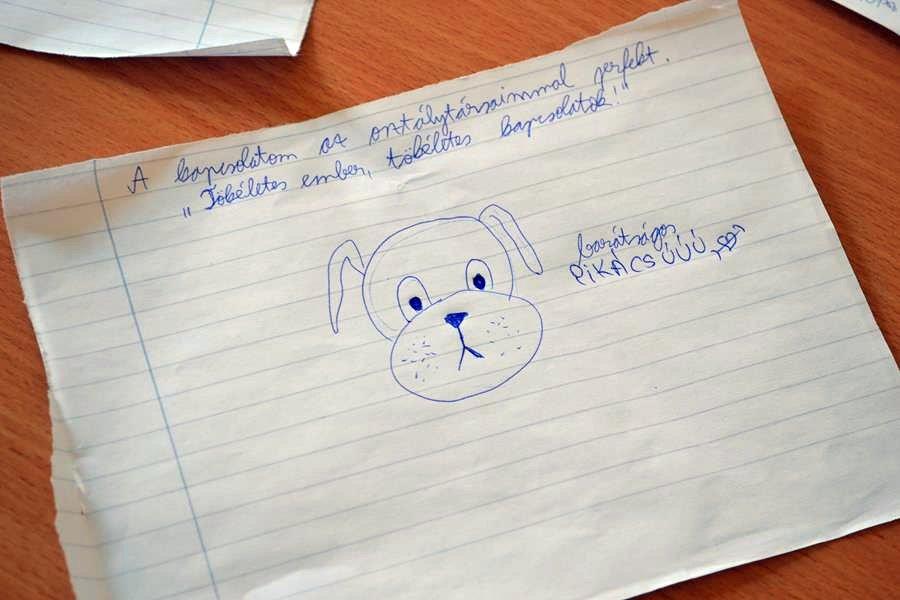 A kapcsolatom az osztálytársaimmal perfekt.
„Tökéletes ember, tökéletes kapcsolatok!"
barátságos
PiKACSÚÚÚ